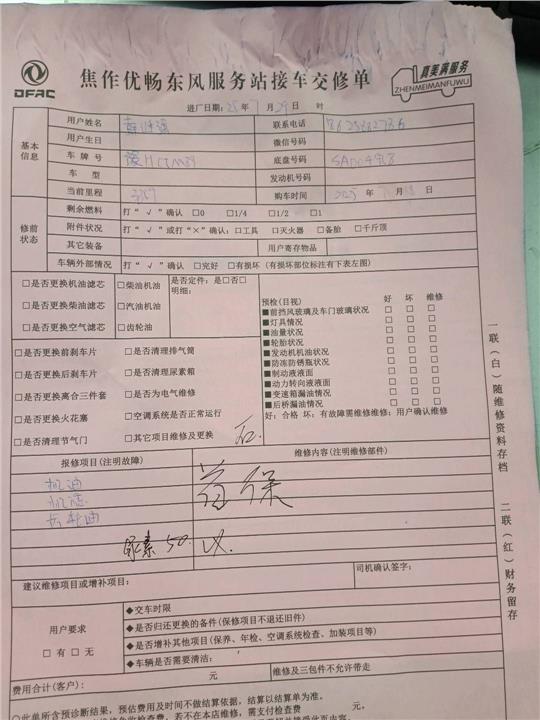 DFAC
焦作优畅东风服务站接车交修单
真美满服务
ZHENMEIMANFUWU
进厂日期: 25 年 7 月 29 日 时
基本信息
用户姓名 联系电话
用户生日 微信号码
车 牌 号 底盘号码
车 型 发动机号码
当前里程 购车时间 2025 年 日
修前状态
剩余燃料 打“√”确认 □0 □1/4 □1/2 □1
附件状况 打“√”或打“×”确认: □工具 □灭火器 □备胎 □千斤顶
其它装备 用户寄存物品
车辆外部情况 打“√”确认 □完好 □有损坏 (有损坏部位标注有下表左图)
□是否更换机油滤芯 □柴油机油 是否定件: 是□否□
明细:
□是否更换柴油滤芯 □汽油机油
□是否更换空气滤芯 □齿轮油
预检(目视) 好 坏 维修
■前挡风玻璃及车门玻璃状况 □ □ □
■灯具情况 □ □ □
■油量状况 □ □ □
■轮胎状况 □ □ □
■发动机机油状况 □ □ □
■防冻防锈瓶状况 □ □ □
■制动液液面 □ □ □
■动力转向液液面 □ □ □
■变速箱漏油情况 □ □ □
■后桥漏油情况 □ □ □
好: 合格 坏: 有故障需维修维修: 用户确认维修
□是否更换前刹车片 □是否清理排气筒
□是否更换后刹车片 □是否清理尿素箱
□是否更换离合三件套 □是否为电气维修
□是否更换火花塞 □空调系统是否正常运行
□是否清理节气门 □其它项目维修及更换
报修项目(注明故障) 维修内容(注明维修部件)
机油
机滤
首保
尿素 50
建议维修项目或增补项目:
司机确认签字:
用户要求
□ 有 □ 无
◆交车时限
◆是否归还更换的备件(保修项目不退还旧件)
◆是否增补其他项目(保养、年检、空调系统检查、加装项目等)
◆车辆是否需要清洁:
费用合计(客户): 元 维修及三包件不允许带走
一联(白)随维修资料存档
二联(红)财务留存